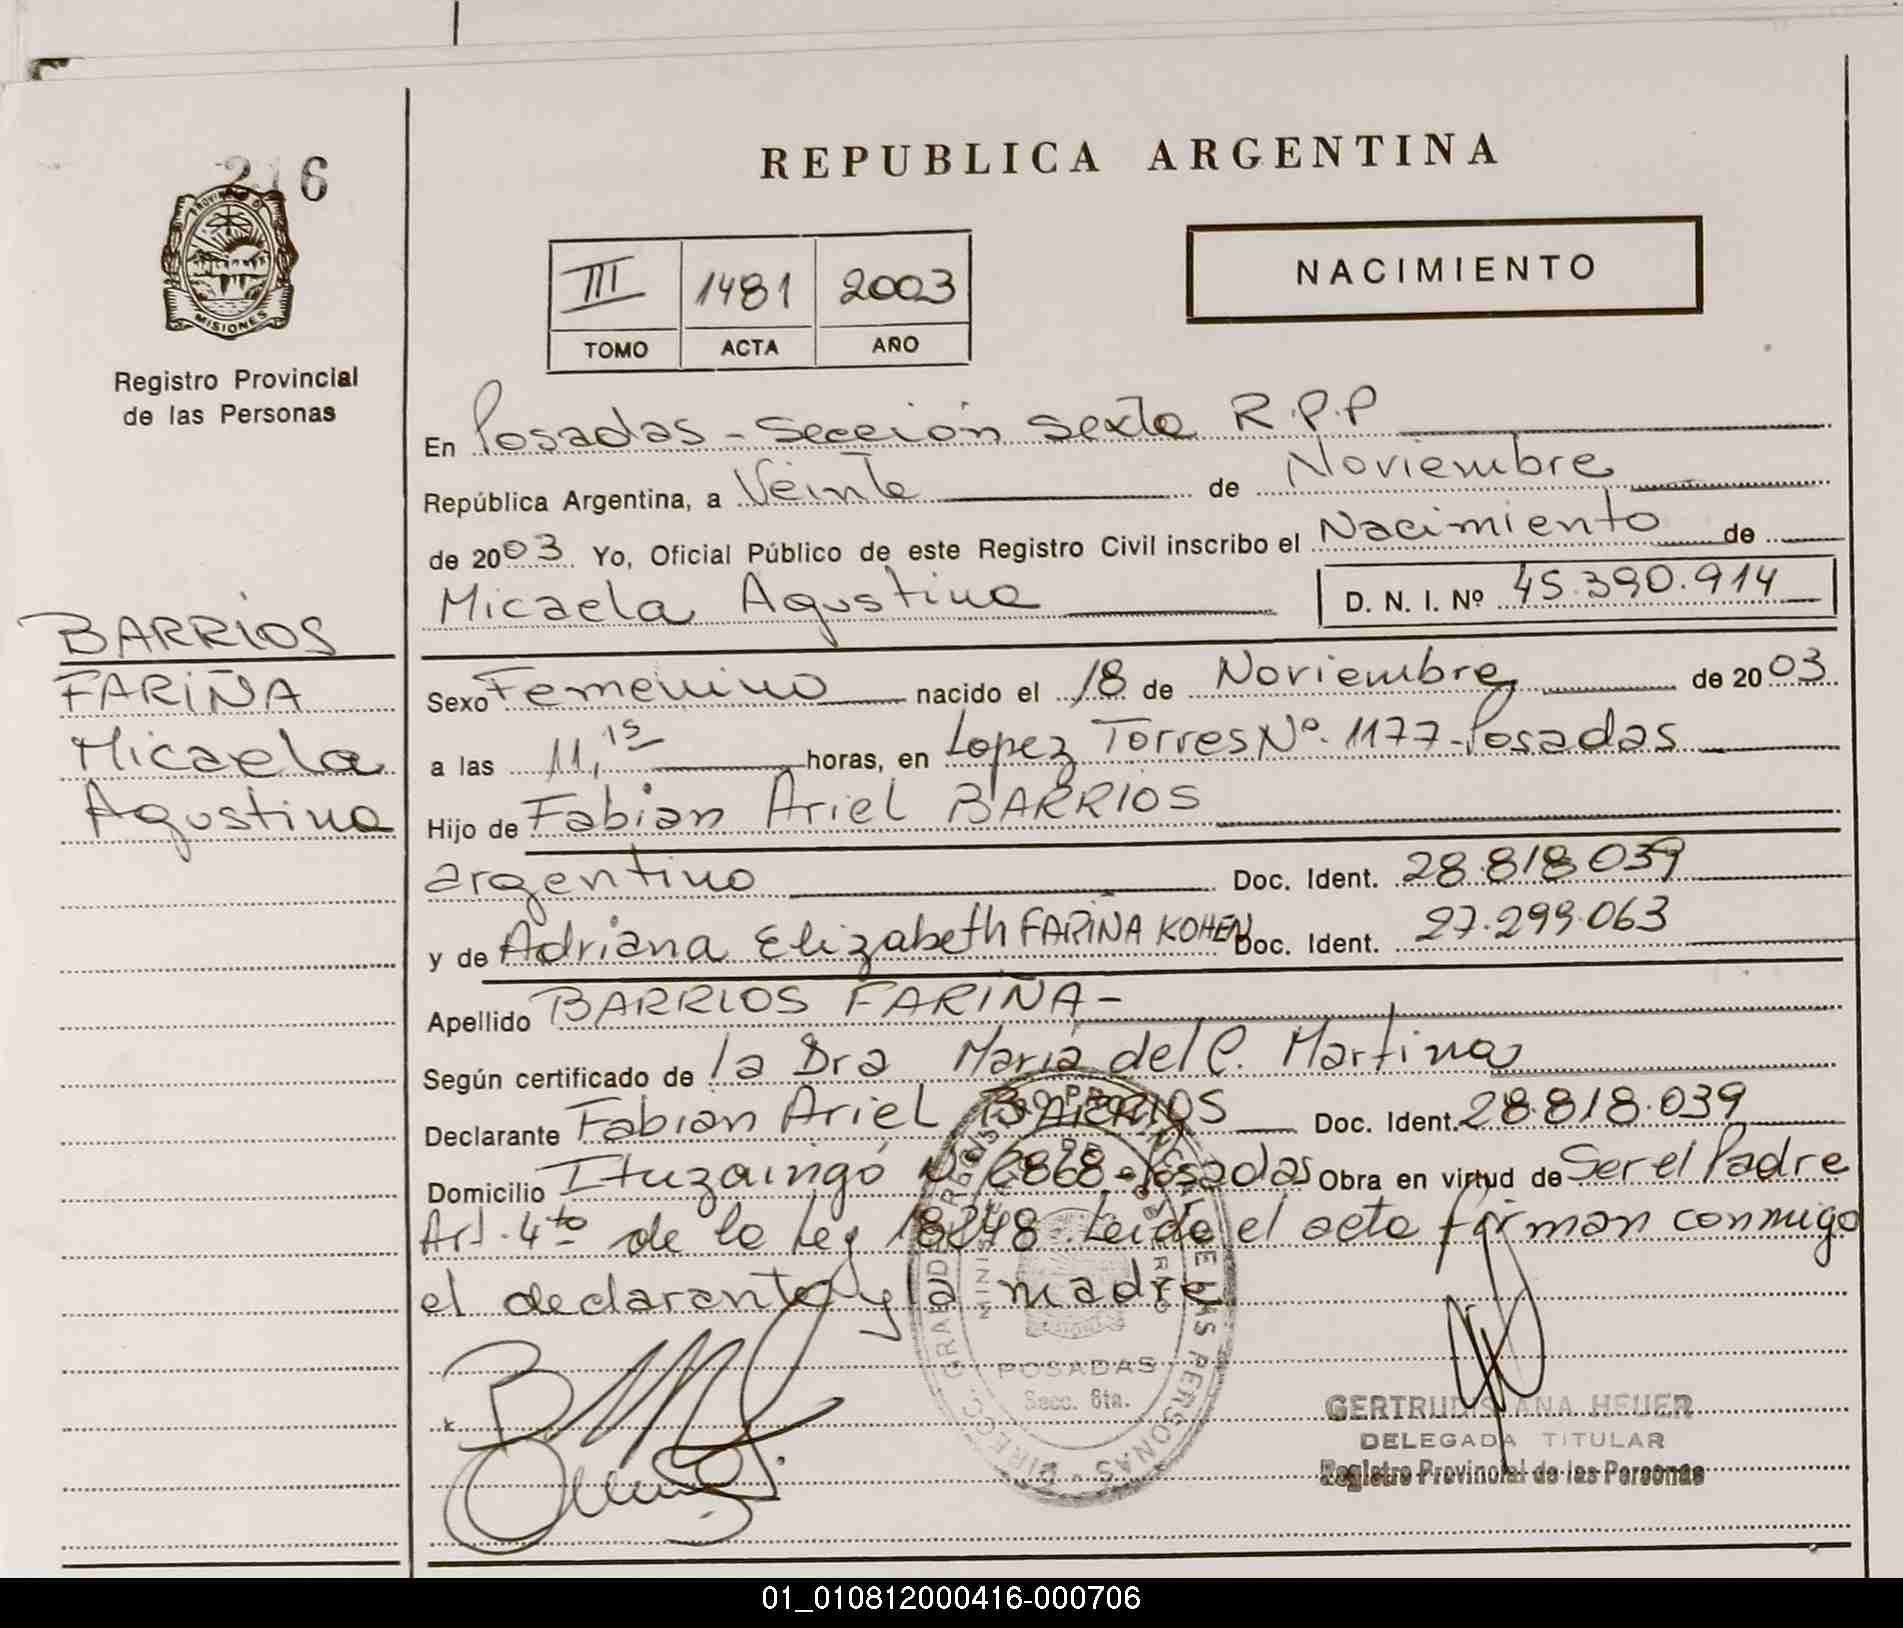 216
PROVINCIA D
MISIONES
Registro Provincial
de las Personas
BARRIOS
FARIÑA
Micaela
Agustina
REPUBLICA ARGENTINA
III 1481 2003
TOMO ACTA AÑO
NACIMIENTO
En Posadas - Sección Sexta R.P.P
República Argentina, a Veinte de Noviembre
de 2003 Yo, Oficial Público de este Registro Civil inscribo el Nacimiento de
Micaela Agustina D. N. I. Nº 45.390.914
Sexo Femenino nacido el 18 de Noviembre de 2003
a las 11,15 horas, en Lopez Torres Nº. 1177 - Posadas
Hijo de Fabian Ariel BARRIOS
argentino Doc. Ident. 28.818.039
y de Adriana Elizabeth FARIÑA KOHEN Doc. Ident. 27.299.063
Apellido BARRIOS FARIÑA -
Según certificado de la Dra Maria del C. Martinez
Declarante Fabian Ariel BARRIOS Doc. Ident. 28.818.039
Domicilio Ituzaingó Nº 2868 - Posadas Obra en virtud de Ser el Padre
Art. 4to de la Ley 18248. Leída el acta firman conmigo
el declarante y la madre
POSADAS
Secc. 6ta.
GERTRUDIS ANA HEUER
DELEGADA TITULAR
Registro Provincial de las Personas
01_010812000416-000706